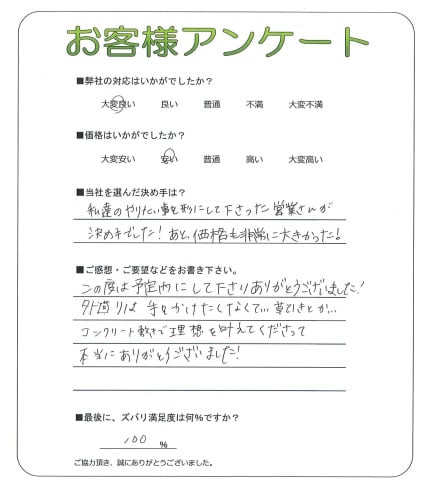 お客様アンケート
■弊社の対応はいかがでしたか?
大変良い 良い 普通 不満 大変不満
■価格はいかがでしたか?
大変安い 安い 普通 高い 大変高い
■当社を選んだ決め手は?
私達のやりたい事を形にして下さった営業さんが
決め手でした!あと、価格も非常に大きかった!
■ご感想・ご要望などをお書き下さい。
この度は予定内にして下さりありがとうございました!
外回りは手をかけたくなくて…草ひきとか…
コンクリート敷きで理想を叶えてくださって
本当にありがとうございました!
■最後に、ズバリ満足度は何%ですか?
100 %
ご協力頂き、誠にありがとうございました。